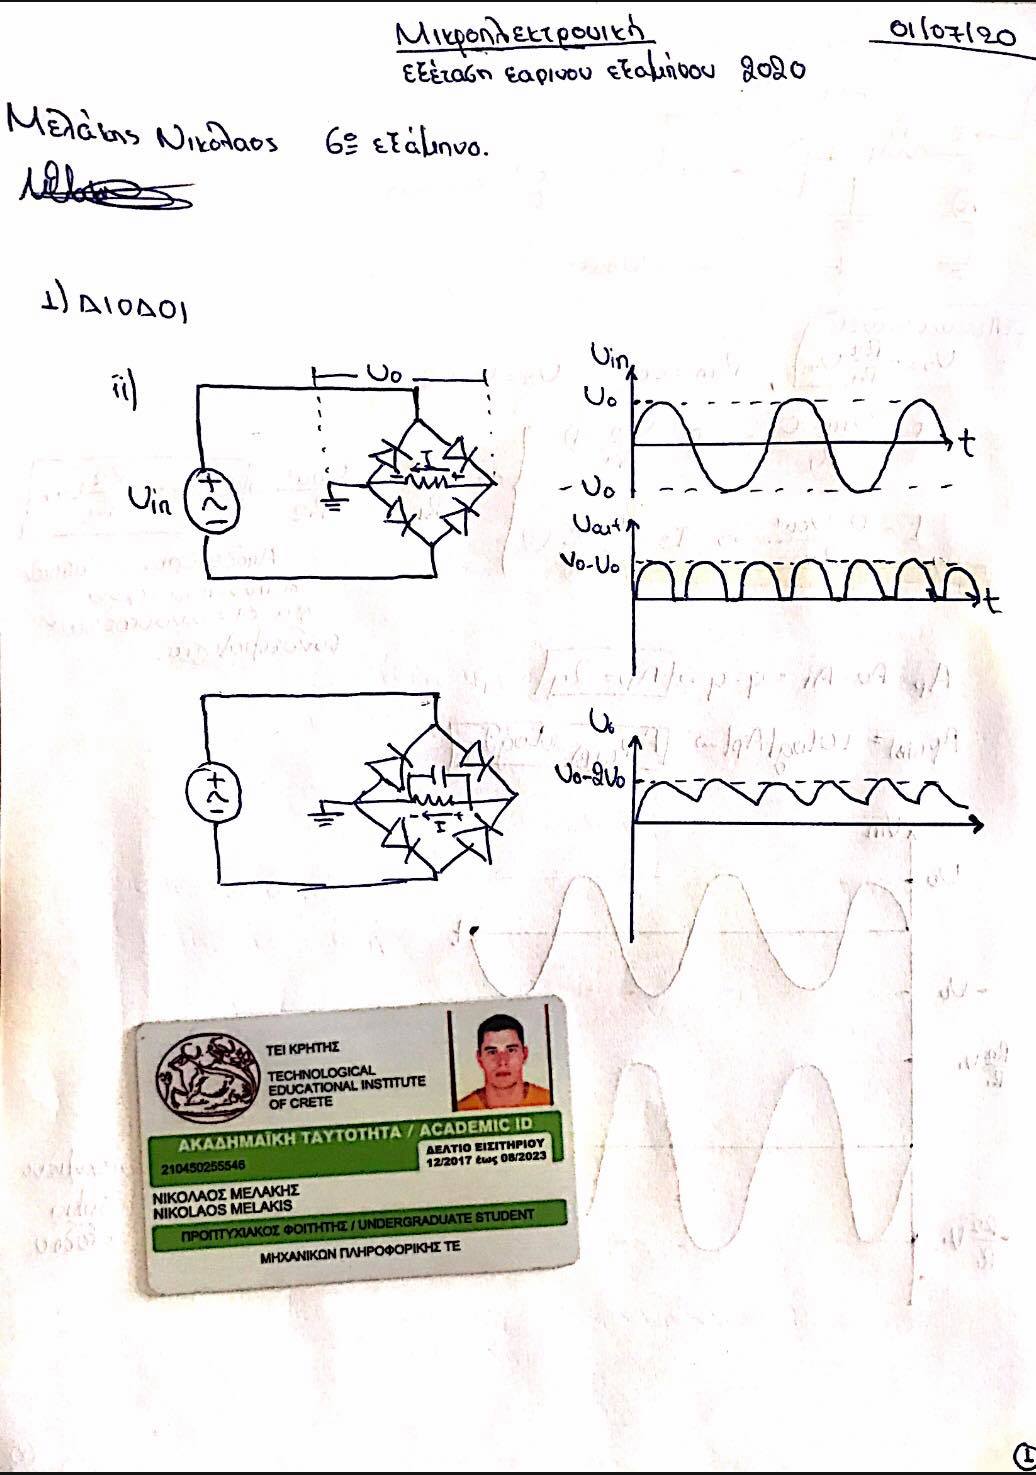 Μικροηλεκτρονική
01/07/20
εξέταση εαρινου εξαμήνου 2020
Μελάκης Νικόλαος 6ο εξάμηνο.
1) ΔΙΟΔΟΙ
ii)
Uo
Uin
+
~
-
- I +
Uin
Uo
-Uo
t
Uout
Vo-Uo
t
+
~
-
- I +
Uo
Vo-2Uo
ΤΕΙ ΚΡΗΤΗΣ
TECHNOLOGICAL
EDUCATIONAL INSTITUTE
OF CRETE
ΑΚΑΔΗΜΑΪΚΗ ΤΑΥΤΟΤΗΤΑ / ACADEMIC ID
210450255546
ΔΕΛΤΙΟ ΕΙΣΙΤΗΡΙΟΥ
12/2017 έως 08/2023
ΝΙΚΟΛΑΟΣ ΜΕΛΑΚΗΣ
NIKOLAOS MELAKIS
ΠΡΟΠΤΥΧΙΑΚΟΣ ΦΟΙΤΗΤΗΣ / UNDERGRADUATE STUDENT
ΜΗΧΑΝΙΚΩΝ ΠΛΗΡΟΦΟΡΙΚΗΣ ΤΕ
1